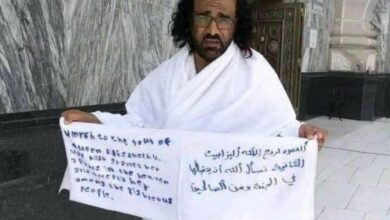 Umrah to the soul of
Queen Elizabeth II,
may Allah grants her
Place in the heaven
and accepts her
among the righteous
people.
العمرة لروح الملكه اليزابيث
الثانية نسأل الله أن يتقبلها
في الجنة ومن الصالحين